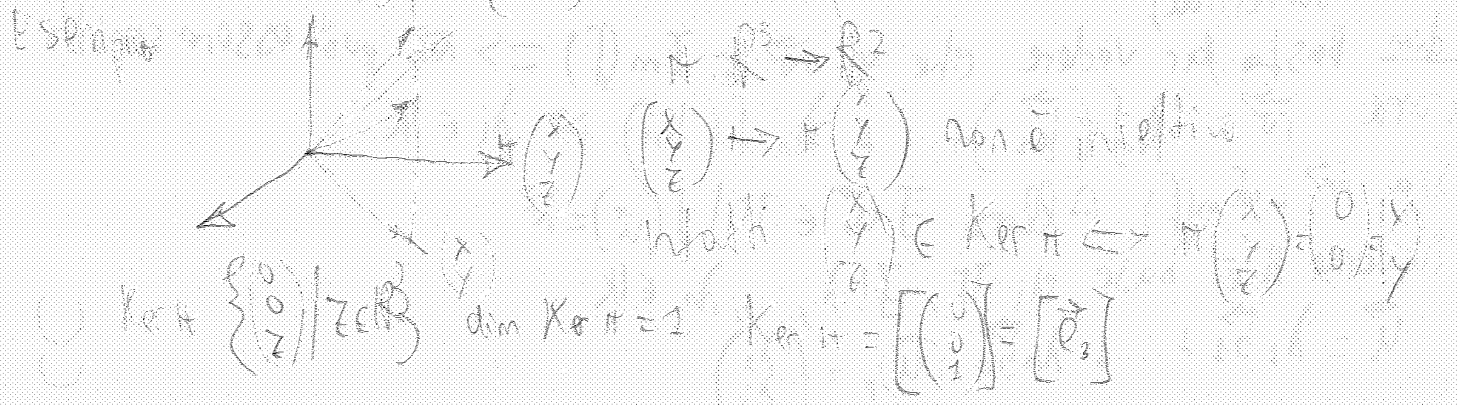 Esempio π: R³ → R²
π(x y z) (x y z) ↦ π(x y z) non è iniettivo
infatti (x y z) ∈ Ker π ⟺ π(x y z) = (0 0) = (x y)
(x y)
Ker π {(0 0 z) | z ∈ R} dim Ker π = 1 Ker π = [(0 0 1)] = [e⃗₃]